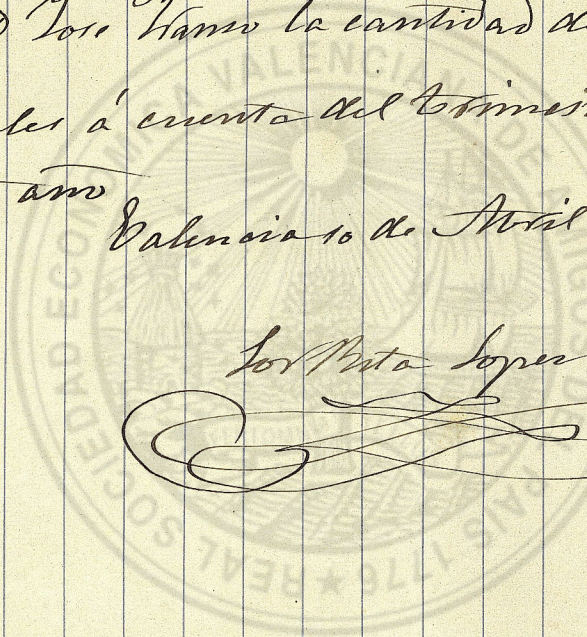 José la cantidad de
les á cuenta del trimes
año
Valencia 10 de Abril
Sor Rita Lopez
REAL SOCIEDAD ECONOMICA VALENCIANA DE AMIGOS DEL PAIS 1776